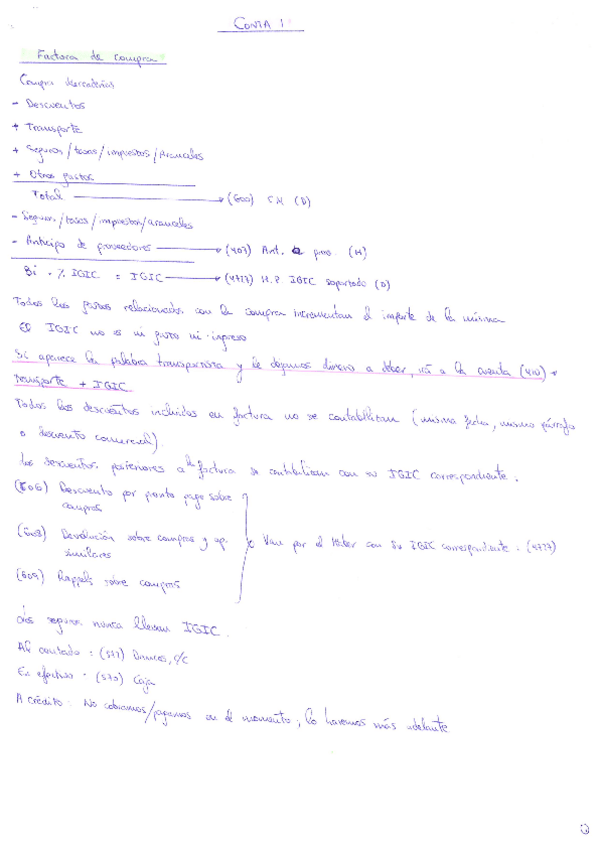 CONTA 1
Factura de compra
Compra mercaderías
- Descuentos
+ Transporte
+ Seguros/tasas/impuestos/aranceles
+ Otros gastos
Total → (600) C.M (D)
- Seguros/tasas/impuestos/aranceles
- Anticipo de proveedores → (407) Ant. a prov. (H)
BI · % IGIC = IGIC → (4727) H.P IGIC soportado (D)
Todos los gastos relacionados con la compra incrementan el importe de la misma
El IGIC no es ni gasto ni ingreso
Si aparece la palabra transportista y le dejamos dinero a deber, irá a la cuenta (410) →
transporte + IGIC
Todos los descuentos incluidos en factura no se contabilizan (misma fecha, mismo párrafo
o descuento comercial).
Los descuentos posteriores a la factura se contabilizan con su IGIC correspondiente.
(606) Descuento por pronto pago sobre
compras
(608) Devolución sobre compras y op.
similares
Van por el Haber con su IGIC correspondiente. (4727)
(609) Rappels sobre compras
Los seguros nunca llevan IGIC.
Al contado: (572) Bancos, c/c
En efectivo: (570) Caja
A crédito: No cobramos/pagamos en el momento, lo haremos más adelante